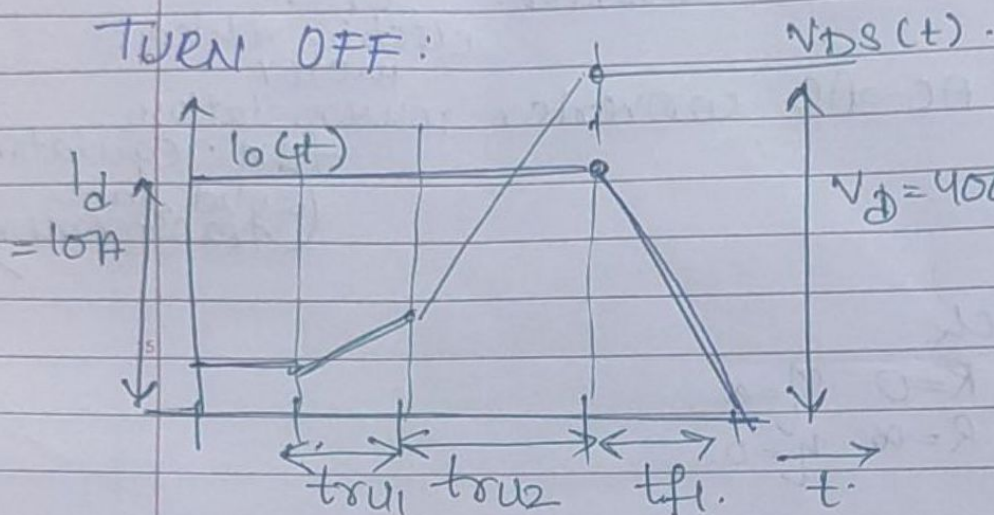 TURN OFF:
VDS(t).
Io(t)
Id
= 10A
VD = 400
tru1 tru2 tf1. t.